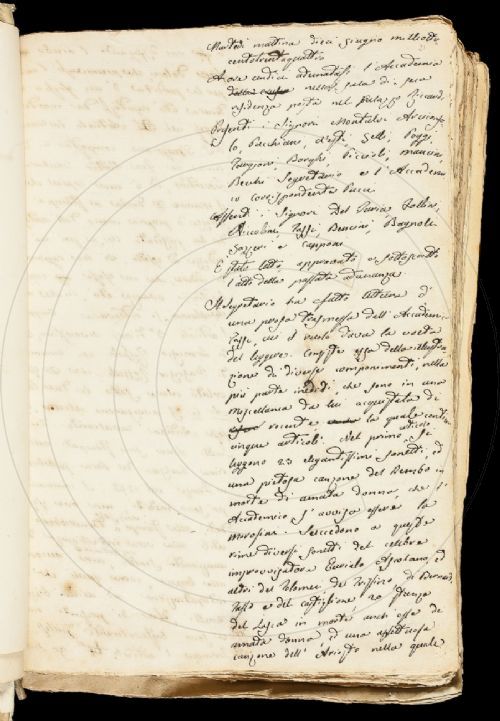 Martedì mattina dieci Giugno milleotto
centotrentaquattro
A ore undici adunatasi l'Accademia
nella sala di sua
residenza posta nel Palazzo Riccardi
Presenti i Signori Montalvi Arcicons
lo, Becchi
Borghi, Piccioli, Mancini,
Becchi Segretario e l'Accademi
co corrispondente
Assenti i Signori Del Furia, Follini,
Niccolini, Bencini, Bagnoli
e Capponi
È stato letto, approvato e sottoscritto
l'atto della passata adunanza
Il Segretario ha fatto lettura d'
una prosa trasmessa dall'Accademico
cui il ruolo dava la volta
del leggere. Consiste essa della illustra
zione di diversi componimenti, nella
più parte inediti, che sono in una
miscellanea da lui acquistata di
recente la quale contiene
cinque articoli. Nel primo articolo si
leggono 23 elegantissimi sonetti, ed
una pietosa canzone del Bembo in
morte di amata donna, che l'
Accademico s'avvisa essere la
Morosina. Succedono a queste
rime diversi sonetti del celebre
improvvisatore Eurialo Ascolano, ed
altri del Tolomei del Trissino di Bernardo
Tasso e del Castiglione 20 stanze
del Lasca in morte anch'esse di
amata donna ed una affettuosa
canzone dell'Ariosto nella quale